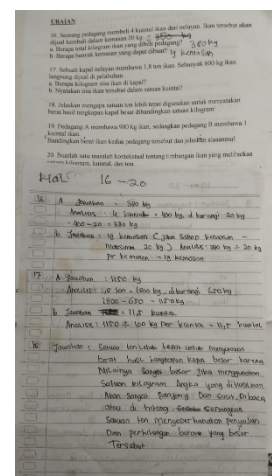 URAIAN
16. Seorang pedagang membeli 4 kuintal ikan dari nelayan. Ikan tersebut akan
dijual kembali dalam kemasan 20 kg.
a. Berapa total kilogram ikan yang dibeli pedagang? 380 kg
b. Berapa banyak kemasan yang dapat dibuat? 19 kemasan
17. Sebuah kapal nelayan membawa 1,8 ton ikan. Sebanyak 650 kg ikan
langsung dijual di pelabuhan.
a. Berapa kilogram sisa ikan di kapal?
b. Nyatakan sisa ikan tersebut dalam satuan kuintal!
18. Jelaskan mengapa satuan ton lebih tepat digunakan untuk menyatakan
berat hasil tangkapan kapal besar dibandingkan satuan kilogram!
19. Pedagang A membawa 900 kg ikan, sedangkan pedagang B membawa 1
kuintal ikan.
Bandingkan berat ikan kedua pedagang tersebut dan jelaskan alasanmu!
20. Buatlah satu masalah kontekstual tentang timbangan ikan yang melibatkan
satuan kilogram, kuintal, dan ton.
Hal 16 - 20
16 A Jawaban : 380 kg
Analisis : 4 kuintal = 400 kg, di kurangi 20 kg
400 - 20 = 380 kg
b Jawaban : 19 kemasan (jika setiap kemasan
20 kg) Analisis : 380 kg ÷ 20 kg
Per kemasan = 19 kemasan
17 A Jawaban : 1150 kg
Analisis : 1,8 ton = 1800 kg, dikurangi 650 kg
1800 - 650 = 1150 kg
b Jawaban : 11,5 kuintal
Analisis : 1150 ÷ 100 kg Per kuintal = 11,5 kuintal
18 Jawaban : Satuan ton Lebih tepat untuk menyatakan
berat hasil tangkapan kapal besar karena
Nilainya Sangat besar Jika menggunakan
Satuan kilogram Angka yang dihasilkan
Akan Sangat Panjang Dan Sulit Dibaca
atau di hitung
Satuan ton menyederhanakan penyajian
Dan perhitungan yang besar
Tersebut